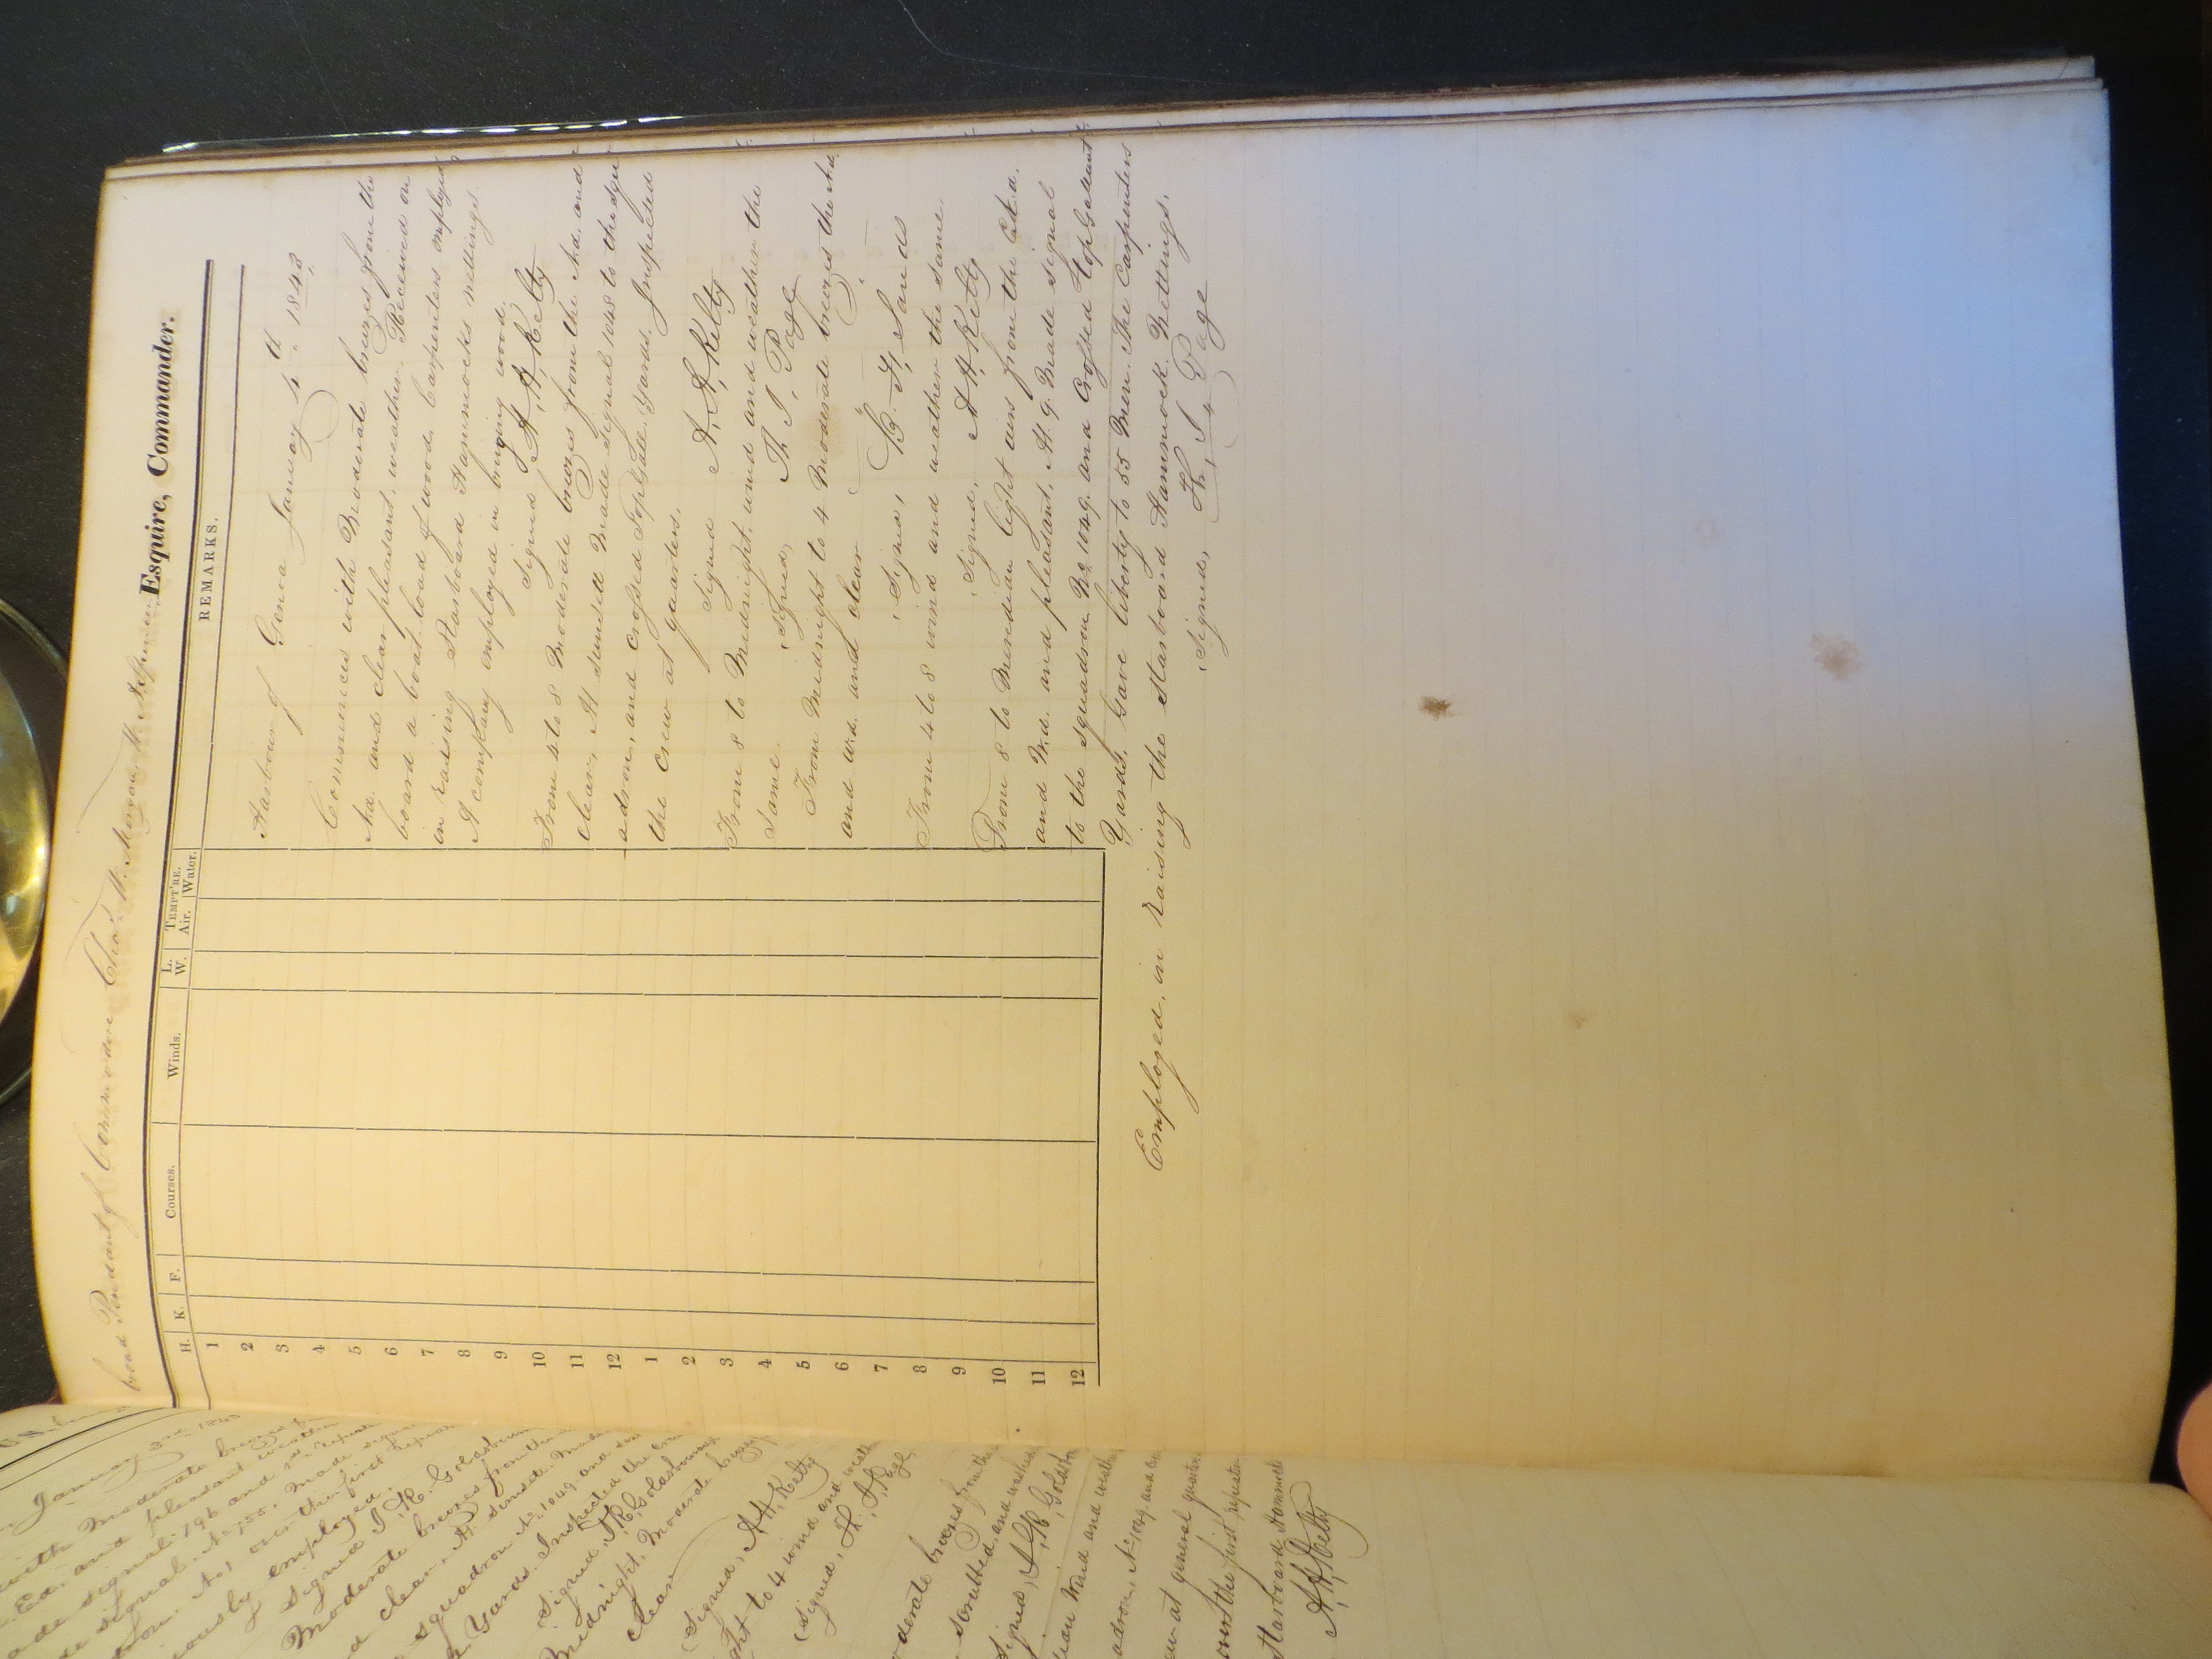 broad Pendant of Commodore Cha's. W. Morgan
Esquire, Commander.
H. K. F. Courses. Winds. L. W. TEMPT'RE. Air. Water. REMARKS.
1
2
3
4
5
6
7
8
9
10
11
12
1
2
3
4
5
6
7
8
9
10
11
12
Harbour of Genoa January 4th 1843,
Commences with Moderate breezes from the
Nd. and clear pleasant, weather. Received on
board a boat load of wood. Carpenters employed
in raising Starboard Hammocks nettings.
A company employed in bringing wood.
Signed A, A, Kelty
From 4 to 8 Moderate breezes from the Nd. and
clear, At sunsett Made signal 1048 to the squ
adron, and crossed TopGall. Yards. Inspected
the crew at quarters.
Signed A, A, Kelty
From 8 to Midnight, wind and weather the
Same. Signed, Th. J. Page
From Midnight to 4 Moderate breezes the Nd
and wd. and clear
Signed, B. F, Sands
From 4 to 8 wind and weather the same.
Signed, A H, Kelty
From 8 to Meredian light airs from the Ed.
and Nd. and pleasant, At 9. Made signal
to the squadron No 1049. and Crossed TopGallant
Yards. Gave liberty to 55 Men. The Carpenters
Employed, in raising the Starboard Hammock Nettings,
Signed, Th, J, Page
January 3rd 1843
with Moderate breezes
Ed. and pleasant weather
ade signal 796 and 1st repeater
signal, No 755, Made signal
No, 1, over the first repeat
ously employed.
Signed J, R. Goldsbor
Moderate breezes from the
d clear. At sunset. Made
squadron No 1049. and
Yards. Inspected the crew
Signed, J R Goldsborough
Midnight, Moderate breezes
clear
Signed, A H, Kelty
ght to 4 wind and weath
Signed, Th, J, Page
oderate breezes from the
scrubbed, and washed
Signed, J, R, Goldsb
dian Wind and weath
adron, No 1049. and
ew at general quarters
over the first repeater
Starboard Hammock
A, H, Kelty